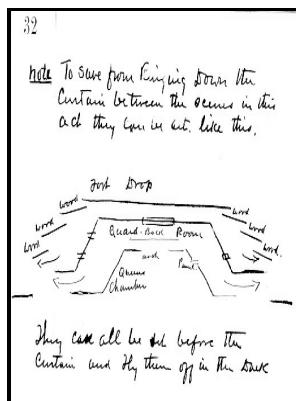 32
Note To save from Ringing Down the
Curtain between the scenes in this
act they can be set. like this.
Fort Drop
wood wood
wood wood
wood wood.
Guard-Back Room
and
Queens
Chamber
They can all be set before the
Curtain and Fly them off in the Dark